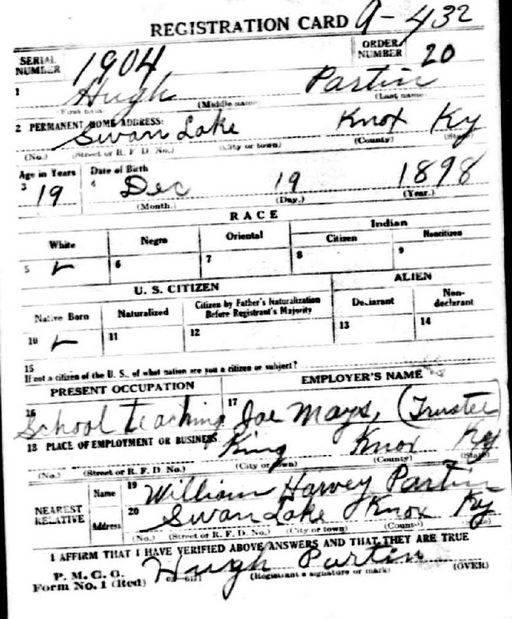 REGISTRATION CARD 9-432
SERIAL NUMBER 1904 ORDER NUMBER 20
1 Hugh Partin
(First name) (Middle name) (Last name)
2 PERMANENT HOME ADDRESS:
Swan Lake Knox Ky
(No.) (Street or R. F. D. No.) (City or town) (County) (State)
Age in Years Date of Birth
3 19 4 Dec 19 1898
(Month.) (Day.) (Year.)
RACE
White Negro Oriental Indian
Citizen Noncitizen
5 ✓ 6 7 8 9
U. S. CITIZEN ALIEN
Native Born Naturalized Citizen by Father's Naturalization Before Registrant's Majority Declarant Non-declarant
10 ✓ 11 12 13 14
15
If not a citizen of the U. S., of what nation are you a citizen or subject?
PRESENT OCCUPATION EMPLOYER'S NAME
16 School teaching 17 Joe Mays, (Trustee
18 PLACE OF EMPLOYMENT OR BUSINESS
King Knox Ky
(No.) (Street or R. F. D. No.) (City or town) (County) (State)
NEAREST RELATIVE Name 19 William Harvey Partin
Address 20 Swan Lake Knox Ky
(No.) (Street or R. F. D. No.) (City or town) (County) (State)
I AFFIRM THAT I HAVE VERIFIED ABOVE ANSWERS AND THAT THEY ARE TRUE
P. M. G. O.
Form No. 1 (Red) Hugh Partin
(Registrant's signature or mark) (OVER)